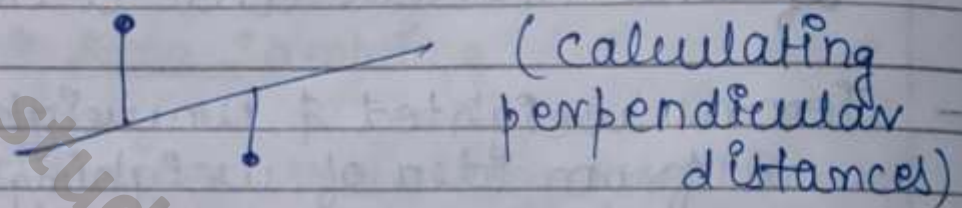 (calculating
perpendicular
distances)
stu